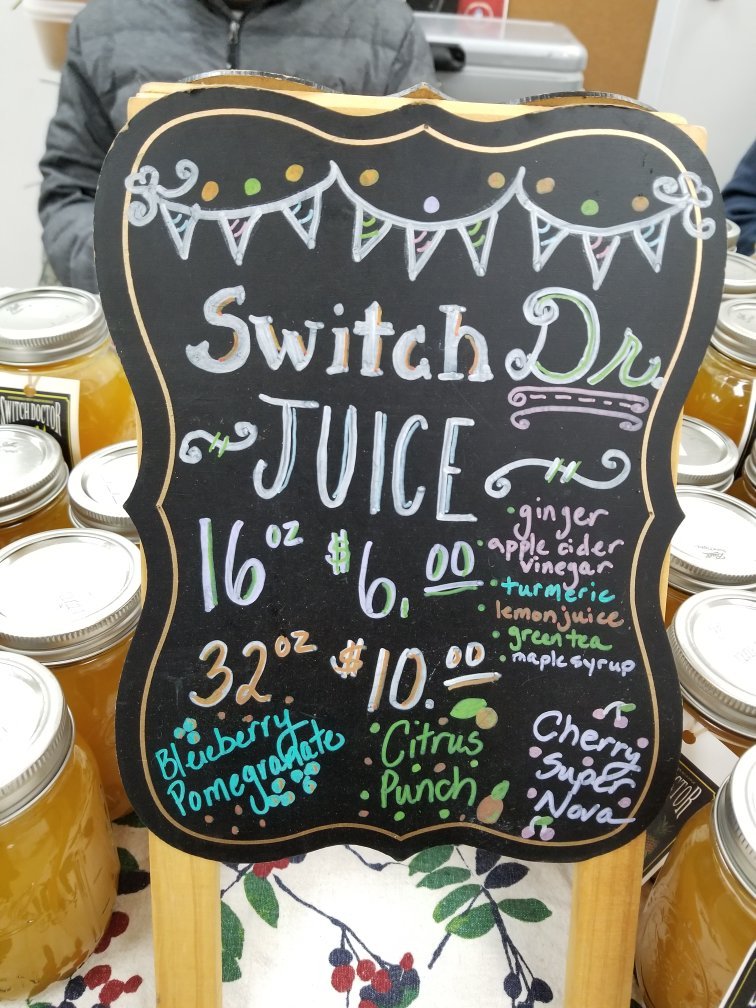 Switch Dr.
JUICE
16 oz $6.00
32 oz $10.00
ginger
apple cider
vinegar
turmeric
lemon juice
green tea
maple syrup
Blueberry
Pomegranate
Citrus
Punch
Cherry
Super
Nova
SWITCH DOCTOR
DOCTOR